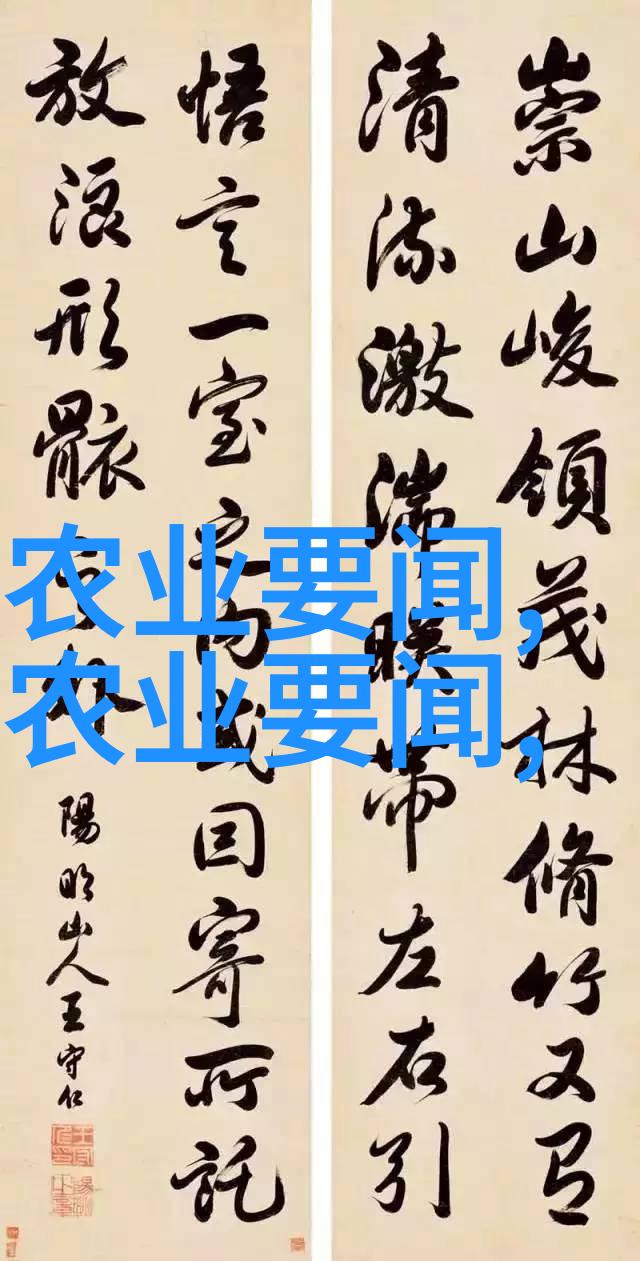 崇山峻領茂林脩竹又有
清流激湍暎帶左右引
悟言一室之内或因寄所託
放浪形骸之外
陽明山人王守仁
农业要闻,
农业要闻,